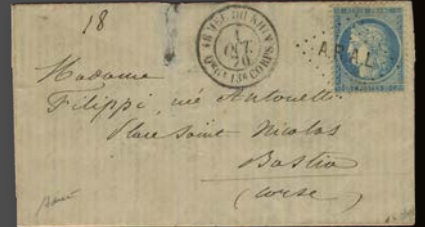 18
ARMÉE DU RHIN
1
OCT.
70
Qer Gal 13e CORPS
A.R.A.L.
Madame
Filippi, née Antonelli
Place Saint Nicolas
Bastia
(Corse)